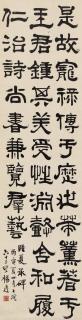 是故寵祿傳于歷世策薰著于
王君鍾其美受性淵懿含和履
仁治詩尚書兼覽羣藝
夏承碑